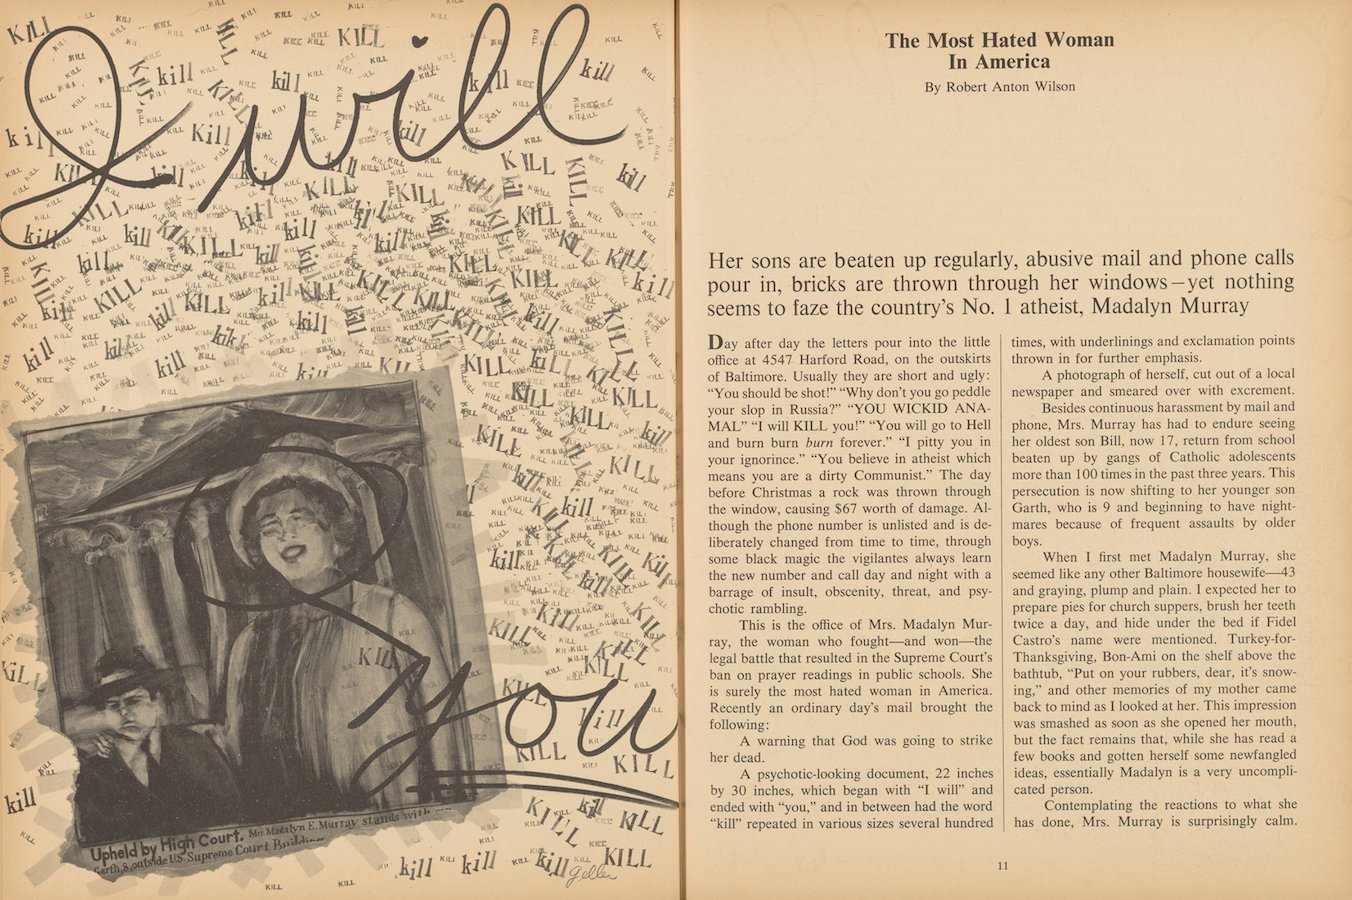 I will
KILL
KILL
kill
kill
kill
KILL
kill
KILL
kill
KILL
KILL
kill
KILL
kill
KILL
you
Upheld by High Court. Mrs Madalyn E. Murray stands with
Garth, 8, outside US Supreme Court
kill
kill
kill
KILL
geller
The Most Hated Woman
In America
By Robert Anton Wilson
Her sons are beaten up regularly, abusive mail and phone calls
pour in, bricks are thrown through her windows—yet nothing
seems to faze the country's No. 1 atheist, Madalyn Murray
Day after day the letters pour into the little
office at 4547 Harford Road, on the outskirts
of Baltimore. Usually they are short and ugly:
"You should be shot!" "Why don't you go peddle
your slop in Russia?" "YOU WICKID ANA-
MAL" "I will KILL you!" "You will go to Hell
and burn burn burn forever." "I pitty you in
your ignorince." "You believe in atheist which
means you are a dirty Communist." The day
before Christmas a rock was thrown through
the window, causing $67 worth of damage. Al-
though the phone number is unlisted and is de-
liberately changed from time to time, through
some black magic the vigilantes always learn
the new number and call day and night with a
barrage of insult, obscenity, threat, and psy-
chotic rambling.
This is the office of Mrs. Madalyn Mur-
ray, the woman who fought—and won—the
legal battle that resulted in the Supreme Court's
ban on prayer readings in public schools. She
is surely the most hated woman in America.
Recently an ordinary day's mail brought the
following:
A warning that God was going to strike
her dead.
A psychotic-looking document, 22 inches
by 30 inches, which began with "I will" and
ended with "you," and in between had the word
"kill" repeated in various sizes several hundred
times, with underlinings and exclamation points
thrown in for further emphasis.
A photograph of herself, cut out of a local
newspaper and smeared over with excrement.
Besides continuous harassment by mail and
phone, Mrs. Murray has had to endure seeing
her oldest son Bill, now 17, return from school
beaten up by gangs of Catholic adolescents
more than 100 times in the past three years. This
persecution is now shifting to her younger son
Garth, who is 9 and beginning to have night-
mares because of frequent assaults by older
boys.
When I first met Madalyn Murray, she
seemed like any other Baltimore housewife—43
and graying, plump and plain. I expected her to
prepare pies for church suppers, brush her teeth
twice a day, and hide under the bed if Fidel
Castro's name were mentioned. Turkey-for-
Thanksgiving, Bon-Ami on the shelf above the
bathtub, "Put on your rubbers, dear, it's snow-
ing," and other memories of my mother came
back to mind as I looked at her. This impression
was smashed as soon as she opened her mouth,
but the fact remains that, while she has read a
few books and gotten herself some newfangled
ideas, essentially Madalyn is a very uncompli-
cated person.
Contemplating the reactions to what she
has done, Mrs. Murray is surprisingly calm.
11